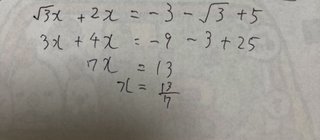 √3x + 2x = -3 - √3 + 5
3x + 4x = -9 - 3 + 25
7x = 13
x = 13/7